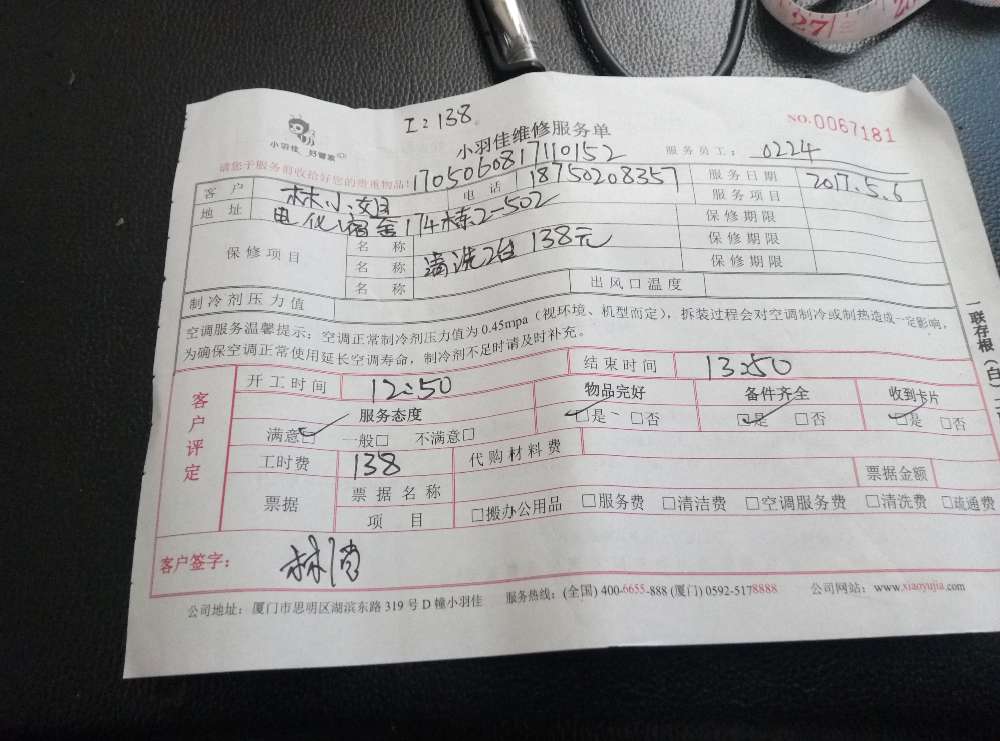 27
工:138
小羽佳 好管家
小羽佳维修服务单
NO.0067181
请您于服务前收拾好您的贵重物品!
1705060817110152
服务员工: 0224
客户 林小姐 电话 18750208357 服务日期 2017.5.6
地址 电化宿舍174栋2-502 服务项目
保修项目 名称 保修期限
名称 清洗2台 138元 保修期限
名称 保修期限
制冷剂压力值 出风口温度
空调服务温馨提示:空调正常制冷剂压力值为0.45mpa(视环境、机型而定),拆装过程会对空调制冷或制热造成一定影响,
为确保空调正常使用延长空调寿命,制冷剂不足时请及时补充。
一联存根(白)
客户评定
开工时间 12:50 结束时间 13:50
服务态度 物品完好 备件齐全 收到卡片
满意□ 一般□ 不满意□ □是 □否 □是 □否 □是 □否
工时费 138 代购材料费
票据 票据名称 票据金额
项目 □搬办公用品 □服务费 □清洁费 □空调服务费 □清洗费 □疏通费
客户签字:
公司地址:厦门市思明区湖滨东路319号D幢小羽佳 服务热线:(全国)400-6655-888(厦门)0592-5178888 公司网站:www.xiaoyujia.com